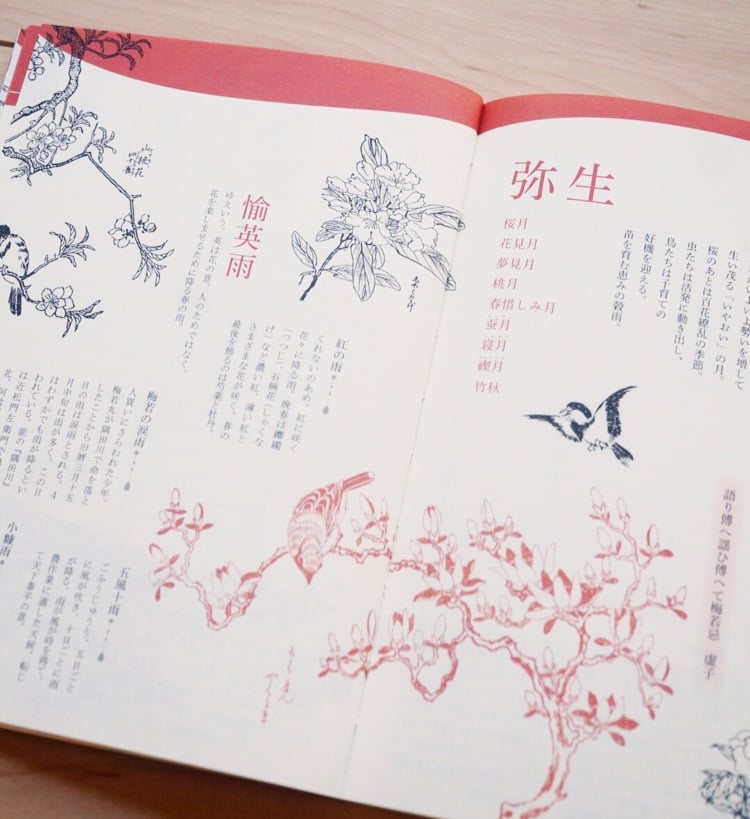 弥生
桜月
花見月
夢見月
桃月
春惜しみ月
蚕月
寝月
禊月
竹秋
いよいよ勢いを増して
生い茂る「いやおい」の月。
桜のあとは百花繚乱の季節。
虫たちは活発に動き出し、
鳥たちは子育ての
好機を迎える。
苗を育む恵みの穀雨。
語り傳へ謡ひ傳へて梅若忌 虚子
愉英雨
ゆえいう。英は花の意。人のためではなく、
花を楽しませるために降る春の雨。
紅の雨
くれないのあめ。紅に咲く
花々に降る雨。晩春は躑躅
（つつじ）、石楠花（しゃくな
げ）など濃い紅、薄い紅と
さまざまな花が咲く。春の
最後を飾るのは芍薬と牡丹。
山桜花
梅若の涙雨
人買いにさらわれた少年、
梅若丸が隅田川で命を落と
したことから旧暦三月十五
日の雨は涙雨とされる。４
月中旬は雨が多く、この日
はわずかでも雨が降るとい
われている。能の『隅田川』
は近松門左衛門
五風十雨
ごふうじゅうう。五日ごと
に風が吹き、十日ごとに雨
が降る。雨が風が時を得て、
農作業に適した天候。転じ
て天下泰平の意。
小糠雨